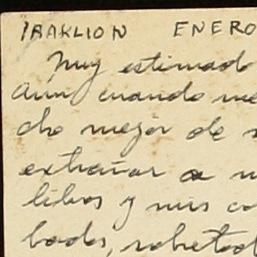 IRAKLION ENERO
Muy estimado
Aun cuando me
cho mejor de
extrañar a
libros y mis co
bados, sobretod